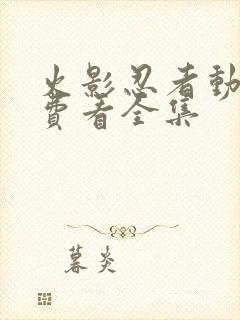 火影忍者動
費看全集
暮炎